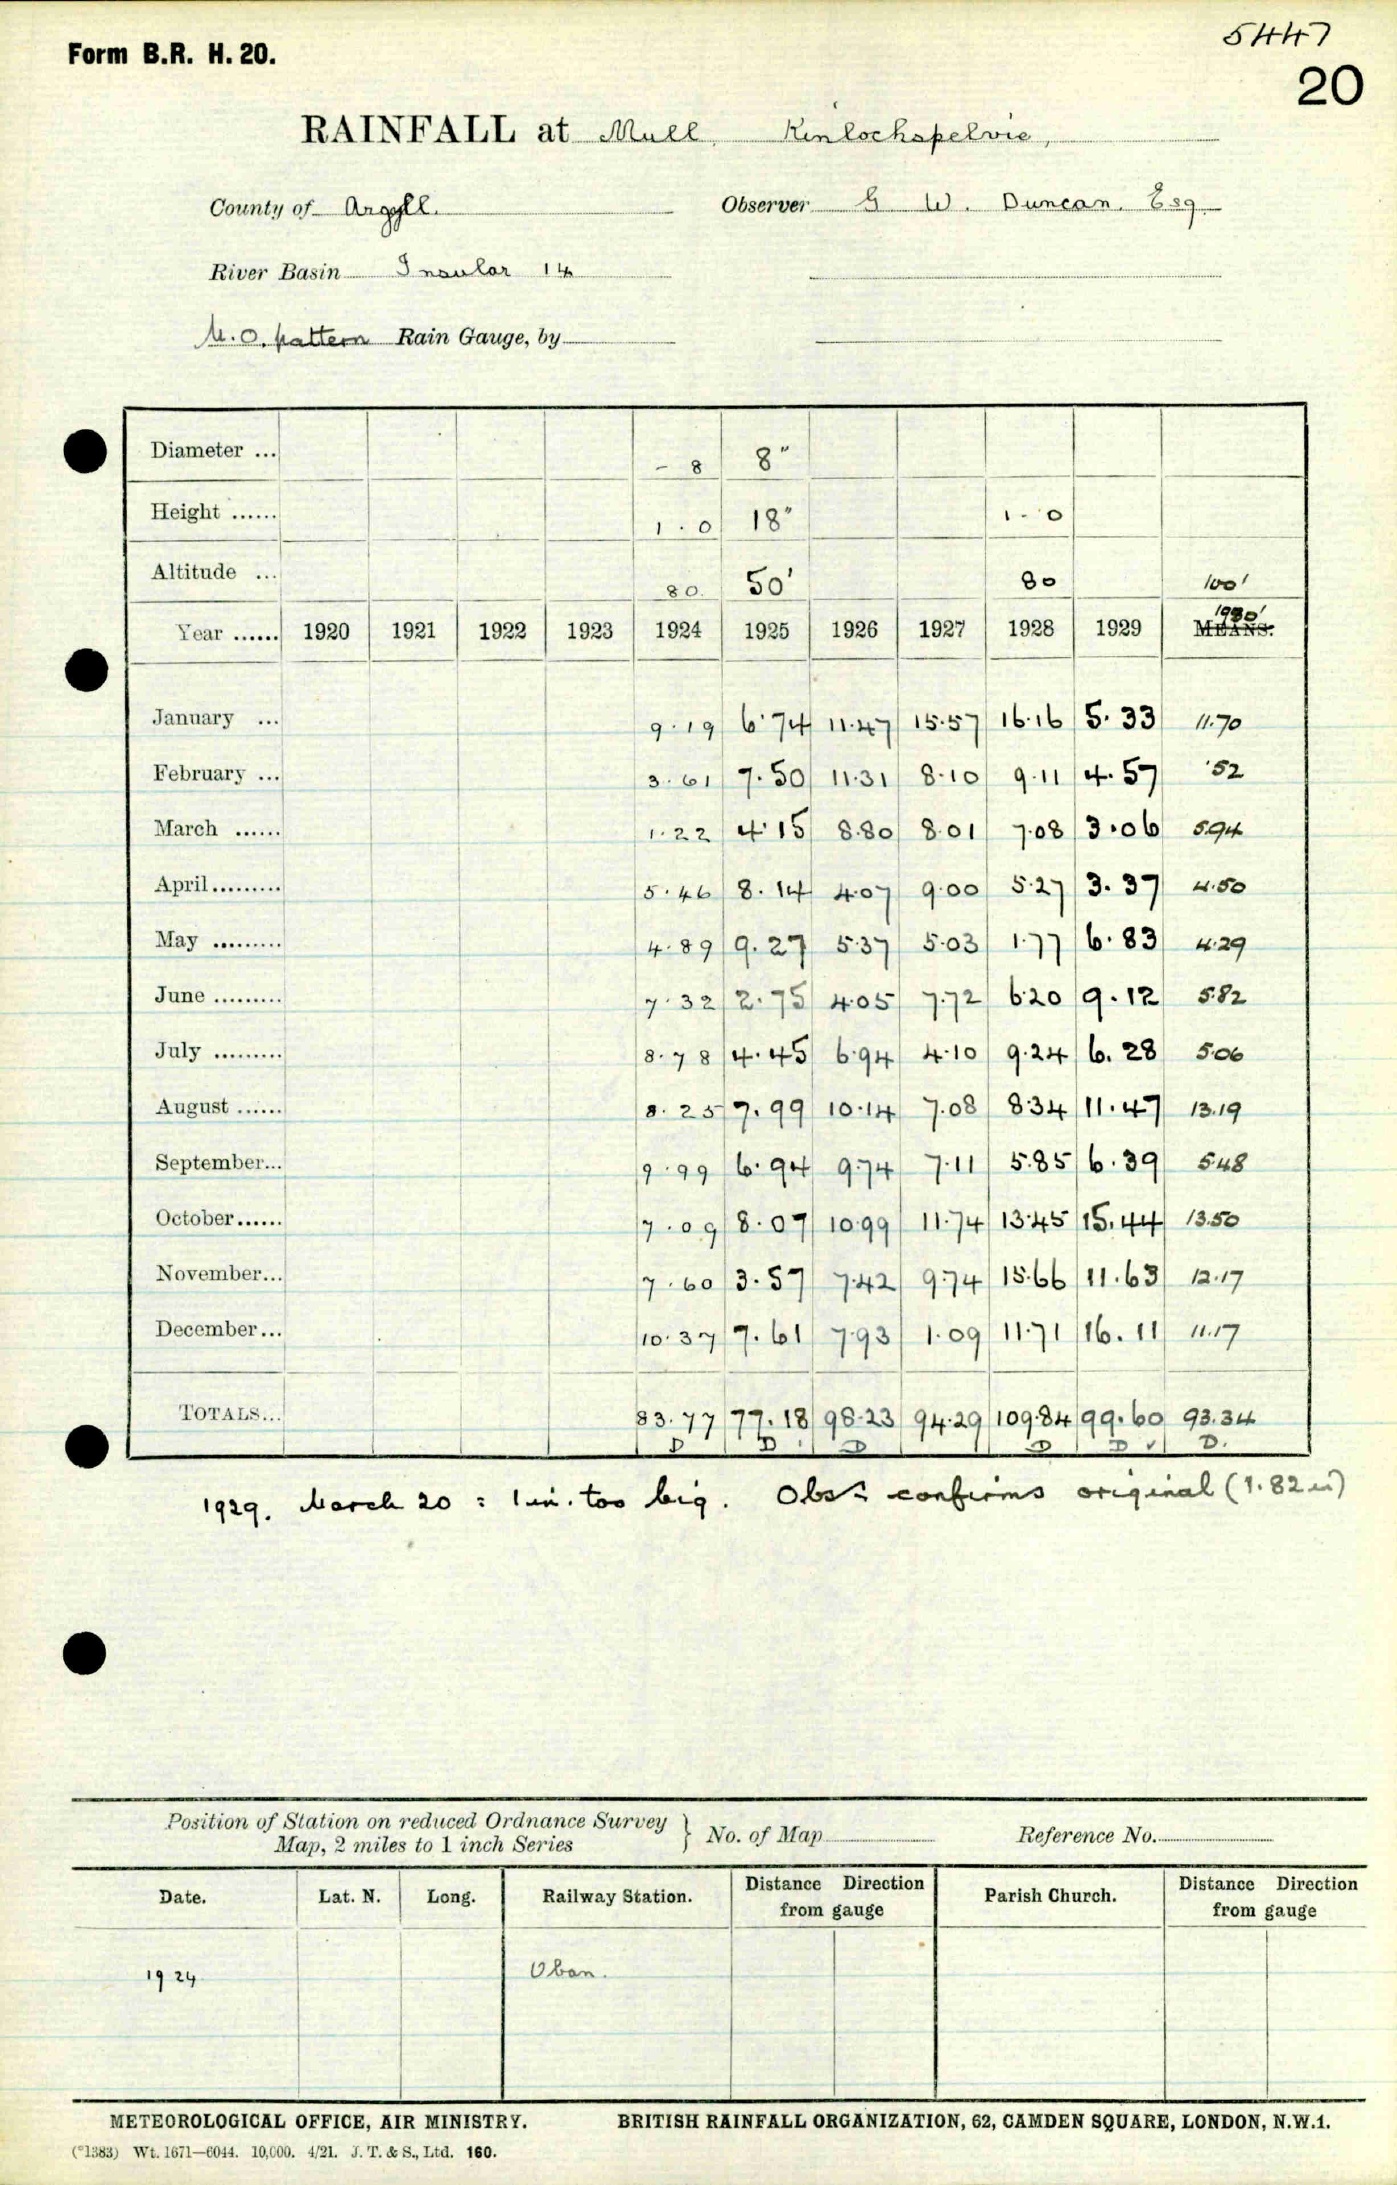 5447
Form B.R. H. 20.
20
RAINFALL at Mull, Kinlochspelvie,
County of Argyll. Observer G W. Duncan. Esq.
River Basin Insular 14
M.O. pattern Rain Gauge, by
Diameter ... - 8 8"
Height ...... 1 . 0 18" 1 - 0
Altitude ... 80. 50' 80 100'
1930'
Year ...... 1920 1921 1922 1923 1924 1925 1926 1927 1928 1929 MEANS.
January ... 9.19 6.74 11.47 15.57 16.16 5.33 11.70
February ... 3.61 7.50 11.31 8.10 9.11 4.57 .52
March ...... 1.22 4.15 8.80 8.01 7.08 3.06 5.94
April......... 5.46 8.14 4.07 9.00 5.27 3.37 4.50
May ......... 4.89 9.27 5.37 5.03 1.77 6.83 4.29
June ......... 7.32 2.75 4.05 7.72 6.20 9.12 5.82
July ......... 8.78 4.45 6.94 4.10 9.24 6.28 5.06
August ...... 8.25 7.99 10.14 7.08 8.34 11.47 13.19
September... 9.99 6.94 9.74 7.11 5.85 6.39 5.48
October...... 7.09 8.07 10.99 11.74 13.45 15.44 13.50
November... 7.60 3.57 7.42 9.74 15.66 11.63 12.17
December... 10.37 7.61 7.93 1.09 11.71 16.11 11.17
TOTALS... 83.77 77.18 98.23 94.29 109.84 99.60 93.34
D D D D D ✓ D.
1929. March 20 = 1 in. too big. Obsr confirms original (1.82 in)
Position of Station on reduced Ordnance Survey
Map, 2 miles to 1 inch Series } No. of Map Reference No.
Date. Lat. N. Long. Railway Station. Distance Direction from gauge Parish Church. Distance Direction from gauge
1924 Oban.
METEOROLOGICAL OFFICE, AIR MINISTRY. BRITISH RAINFALL ORGANIZATION, 62, CAMDEN SQUARE, LONDON, N.W.1.
(*1383) Wt. 1671—6044. 10,000. 4/21. J. T. & S., Ltd. 160.